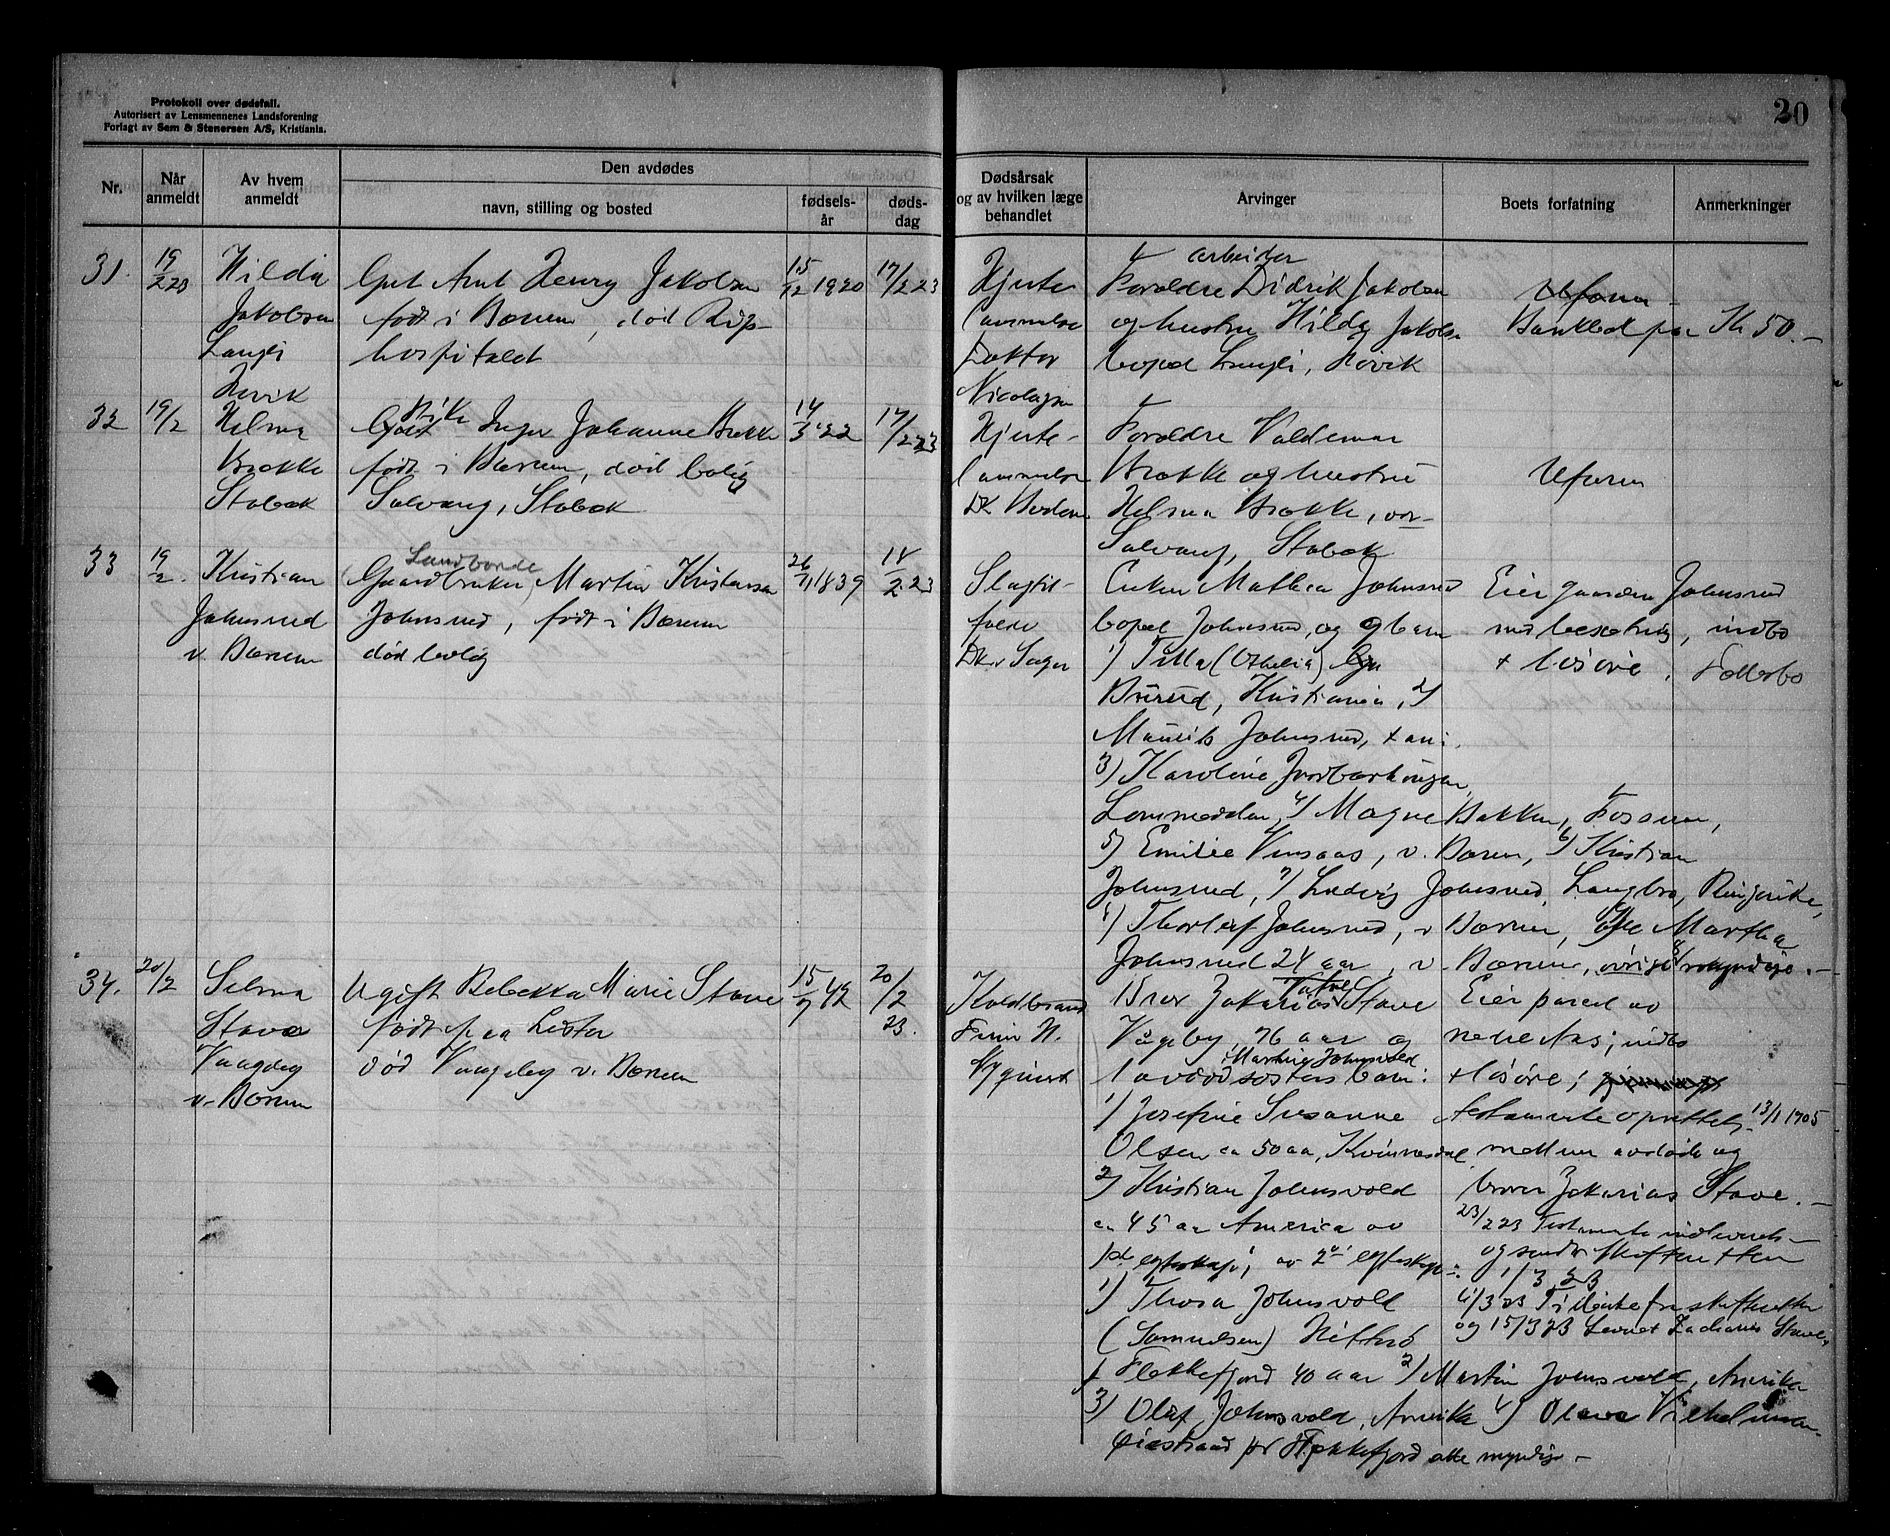 Protokoll over dødsfall.
Autorisert av Lensmennenes Landsforening
Forlagt av Sem & Stenersen A/S, Kristiania.
20
Nr.
Når anmeldt
Av hvem anmeldt
Den avdødes
navn, stilling og bosted
fødsels-år
døds-dag
Dødsårsak og av hvilken læge behandlet
Arvinger
Boets forfatning
Anmerkninger
31.
19/2 23
Hilda
Jakobsen
Langli
Høvik
Gut Arnt Henry Jakobsen
født i Bærum, død Riks-
hospitalet
15/12 1920
17/2 23
Hjerte
lammelse
Doktor
Nicolaysen
arbeider
Foreldre Didrik Jakobsen
og hustru Hilda Jakobs.
bopæl Langli, Høvik
Uformu
Bankbok paa Kr 50.-
32
19/2
Helma
Brække
Stabæk
Pike Inga Johanne Brække
født i Bærum, død bolig
Solvang, Stabæk
14/3 22
17/2 23
Hjerte-
lammelse
Dr.
Foreldre Valdemar
Brække og hustru
Helma Brække,
Solvang, Stabæk
Uformu
33
19/2.
Kristian
Johnsrud
v. Bærum
Landbonde
Gaardbruker Martin Kristiansen
Johnsrud, født i Bærum
død bolig
26/11 1839
18/2 23
Slagtil-
fælde
Dr.
Enken Mathea Johnsrud
bopæl Johnsrud, og 9 barn
1) Tilla (Othelia)
Brurud, Kristiania, 2)
Mauritz Johnsrud,
3) Karoline
Lommedalen, 4) Magne Bakken, Fossum,
5) Emilie Vensaas, v. Bærum, 6) Kristian
Johnsrud, 7) Ludvig Johnsrud, Langbro, Ringerike,
8) Thorleif Johnsrud, v Bærum, 9) Martha
Johnsrud 24 aar, v. Bærum, øvrige myndige.-
Eier gaarden Johnsrud
med besætning, indbo
+ løsøre, Fællesbo
34.
20/2
Selma
Stave
Vaageby
v. Bærum
Ugift Rebekka Marie Stave
født paa Lister
død Vaageby v. Bærum
15/7 42
20/2 23.
Koldbrand
Finn H.
Nyquist
Bror Zakarias Stave
Vågeby, 76 aar og
Martine Johnsvold
1 avdød søsters barn:
1) Josefine Susanne
Olsen ca 50 aa, Kvinnesdal
2) Kristian Johnsvold
ca 45 aa America av
1ste egteskap; av 2et egteskap:
1) Thora Johnsvold
(Samuelsen)
p Flekkefjord 40 aar 2) Martin Johnsvold, Amerika
3) Olaf Johnsvold, Amerika 4) Vilhelmine
pr Flekkefjord alle myndige -
Eier parcel av
nedre Aas; indbo
+ løsøre;
testamente oprettet 13/1 1905
mellem avdøde og
bror Zakarias Stave.-
23/2 23 Testamente indleveret
og sendt skifteretten
1/3 23
15/3 23 Zacharias Stave